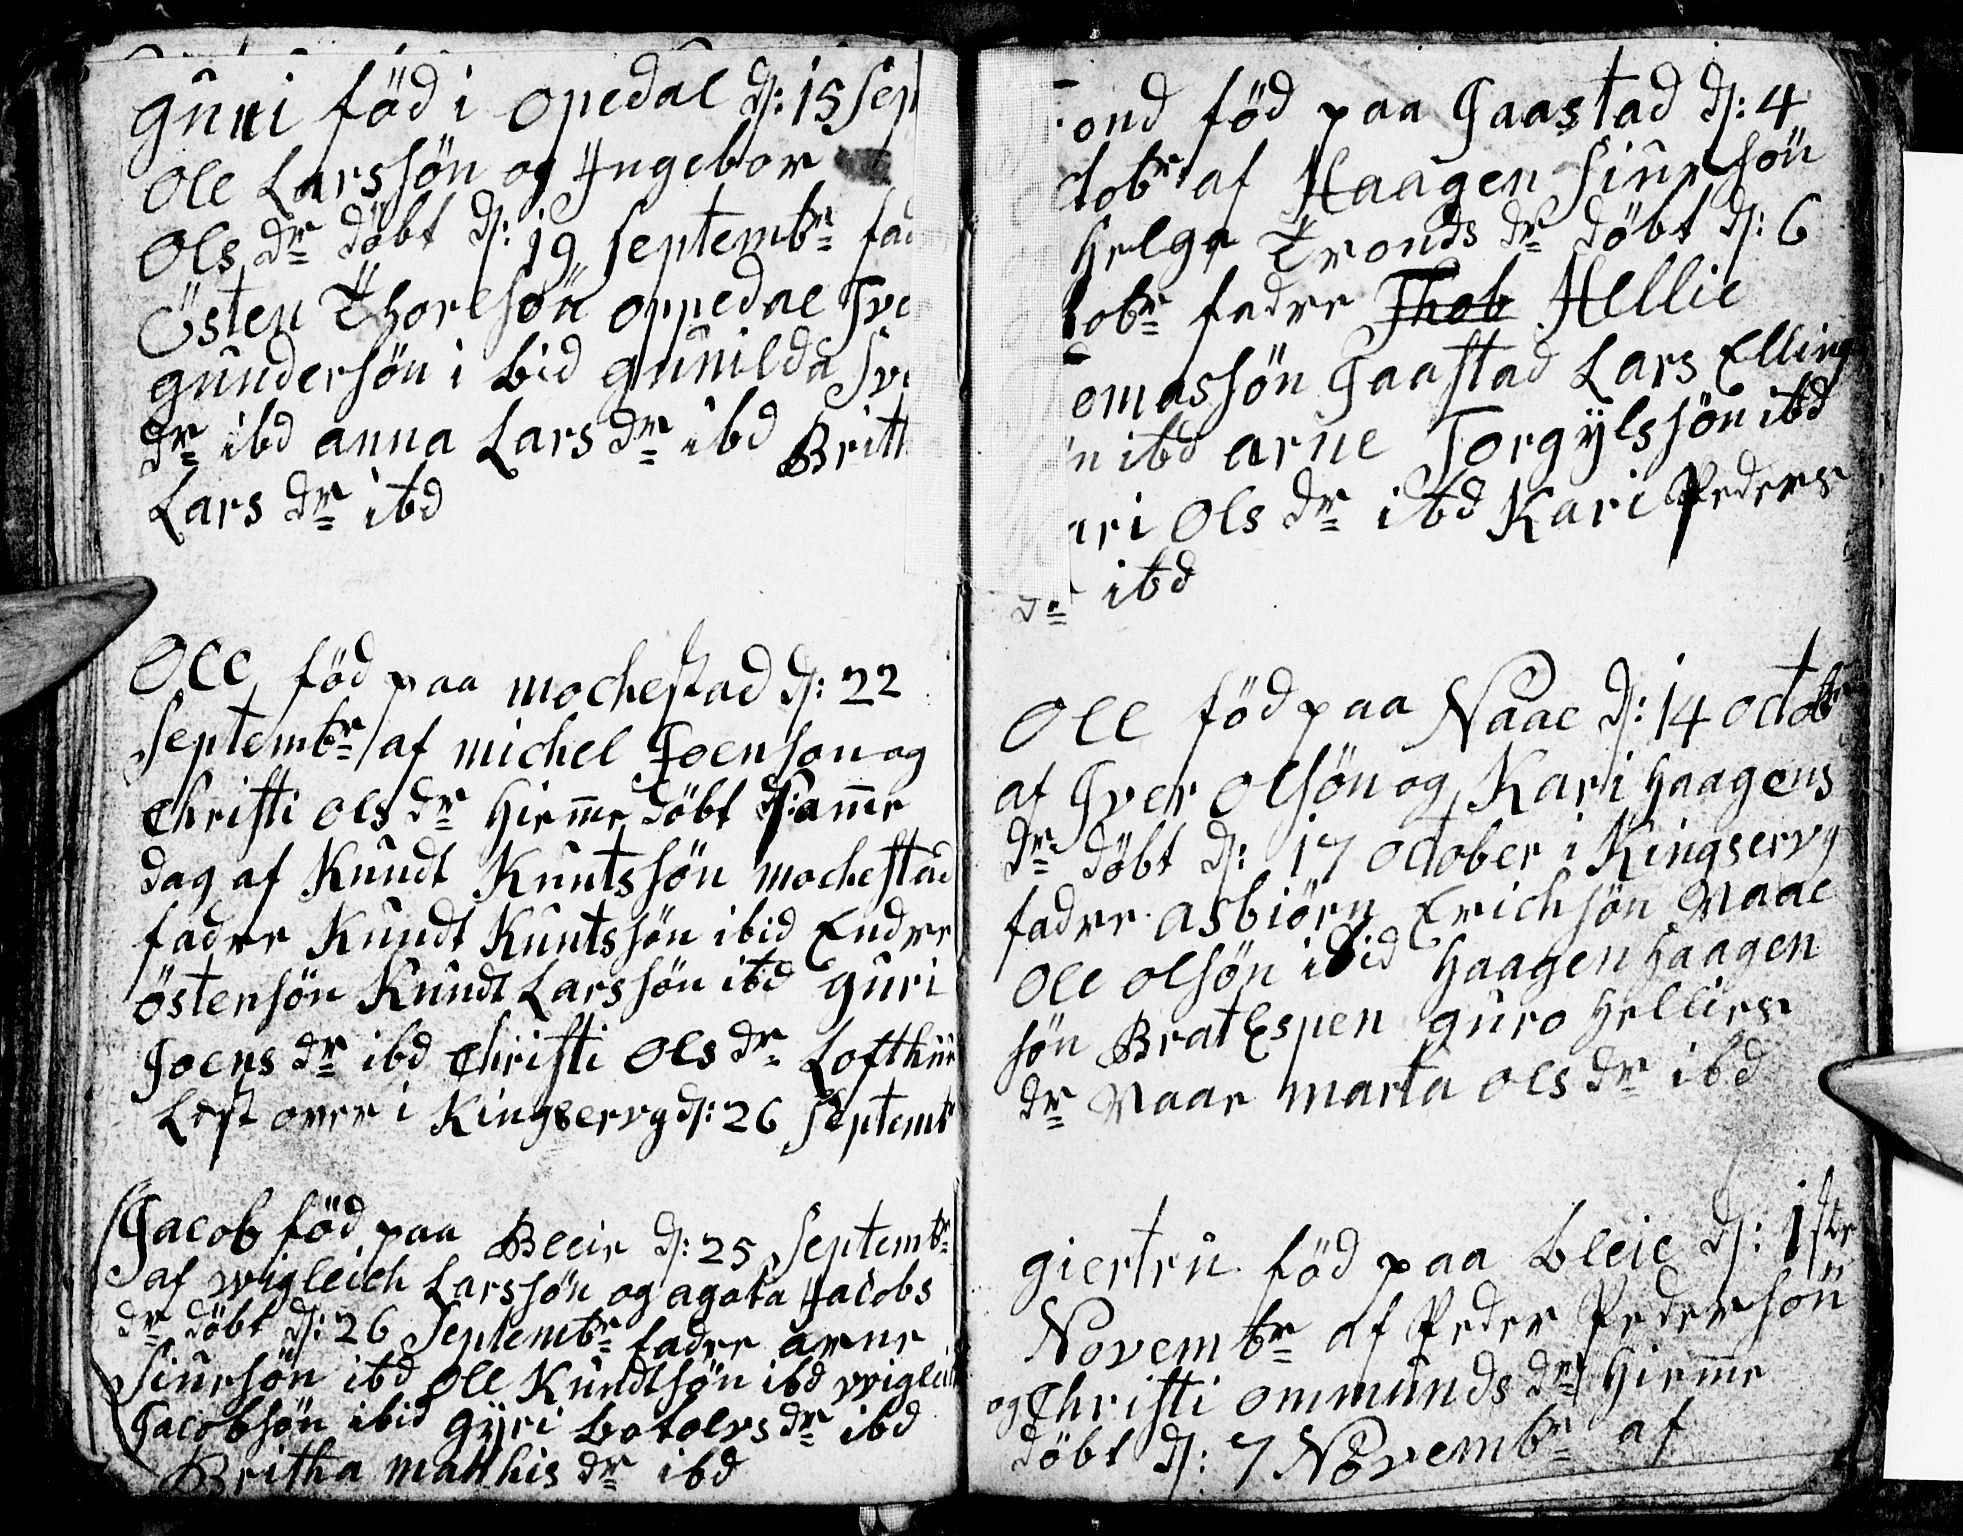 guni föd i opedal d: 15 Sep
Ole Larssön og Ingebor
Ols dr döbt d: 19 Septembr fad
Östen Thorlsön oppedal Ive
gundersön i bid gunilda Ive
dr ibd anna Lars dr ibd Britt
Lars dr ibd
Ole föd paa mochestad d: 22
Septembr af michel Joenson og
Christi Ols dr Hieme döbt samme
dag af Knudt Knutssön mochestad
fadre Knudt Knutssön ibid Endre
östensön Knudt Larssön ibd guri
Joens dr ibd Christi Ols dr Lofthu
Lest over i Kingservg d: 26 Septemb
Jacob föd paa Bleie d: 25 Septembr
af wigleich Larssön og agata Jacobs
dr döbt d: 26 Septembr fadre arne
Siursön ibd Ole Knudtsön ibd wiglei
Jacobsön ibid gyri botolvs dr ibd
Britha matthis dr ibd
ond föd paa Jaastad d: 4
ctobr af Haagen Siursön
Helge Tronds dr döbt d: 6
tobr fadre Thob Hellie
omassön Jaastad Lars Elling
n ibd arne Torgylssön ibd
ari Ols dr ibd Kari Peders
dr ibd
Ole föd paa Naae d: 14 octobr
af Iver Olsön og Kari Haagens
dr döbt d: 17 october i Kingservg
fadre asbiörn Erichsön Naae
Ole Olsön ibid Haagen Haagen
sön BratEspen guro Hellies
dr Naae marta Ols dr ibd
giertru föd paa bleie d: 1ste
Novembr af Peder Pedersön
og Christi ommunds dr Hieme
döbt d: 7 Novembr af